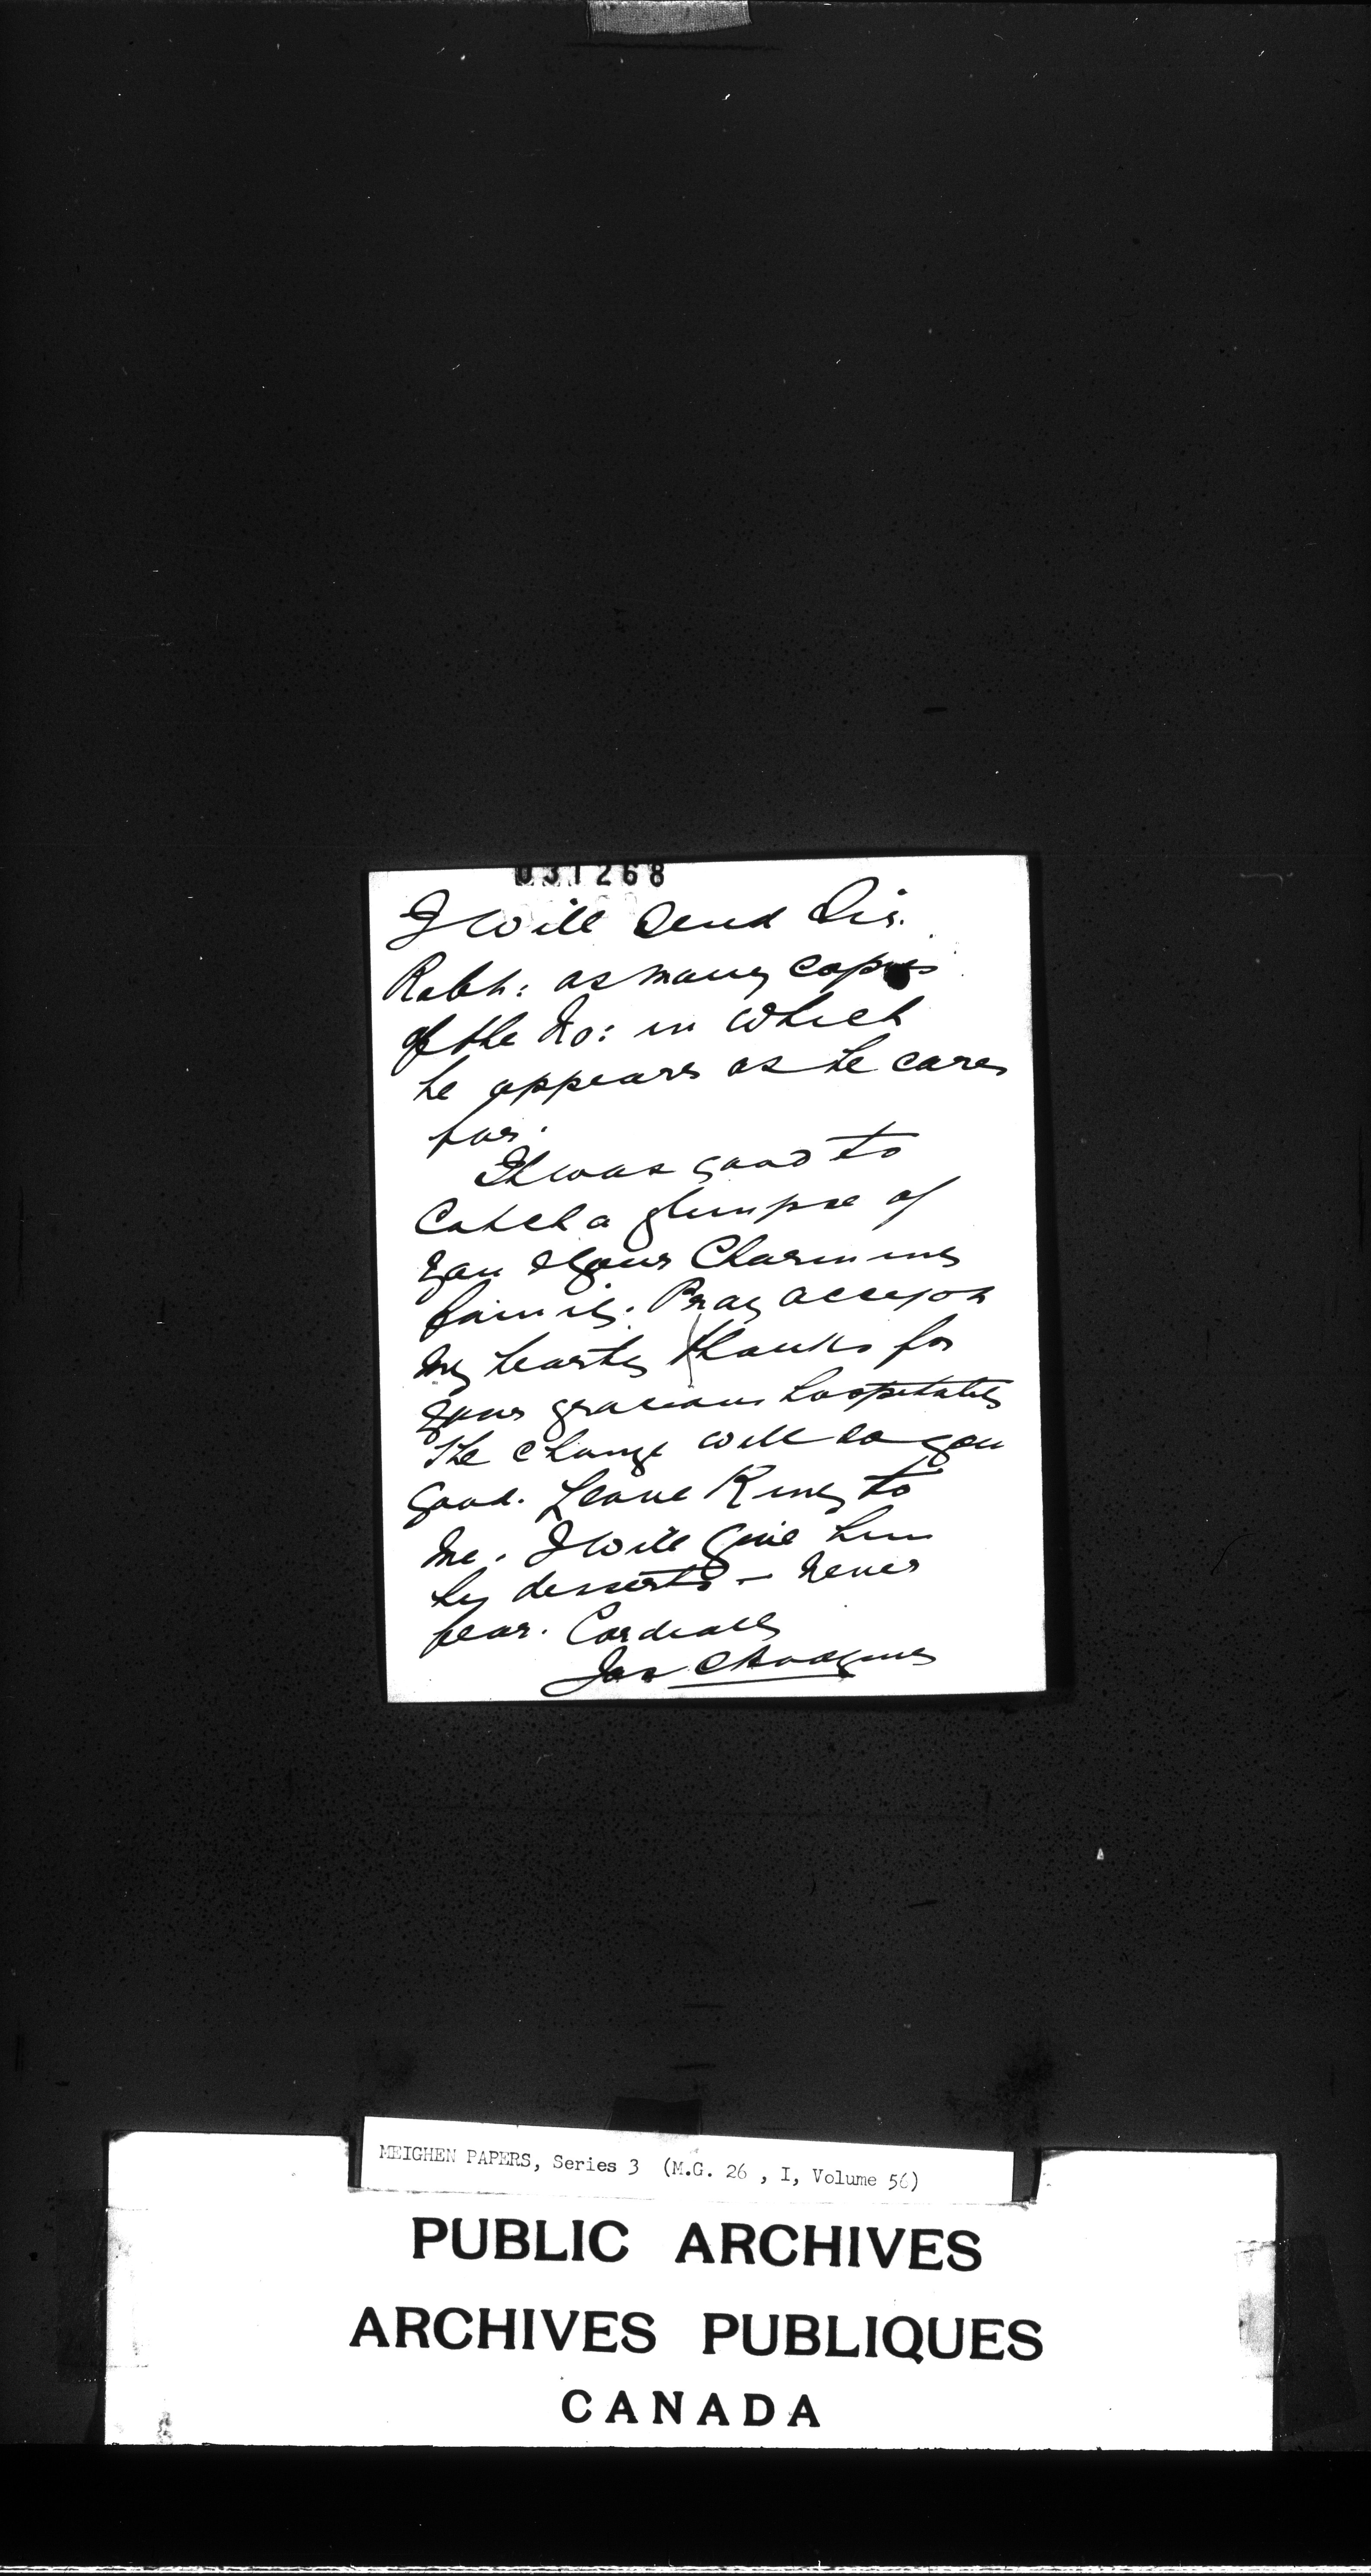 031268
I will send Sir.
Robt: as many copies
of the No: in which
he appears as he cares
for.
It was good to
Catch a glimpse of
you & your Charming
family. Pray accept
my hearty thanks for
your gracious hospitality
The change will do you
good. Leave King to
me. I will give him
his desserts - never
fear. Cordially
Jos C Hodgins
MEIGHEN PAPERS, Series 3 (M.G. 26 , I, Volume 56)
PUBLIC ARCHIVES
ARCHIVES PUBLIQUES
CANADA